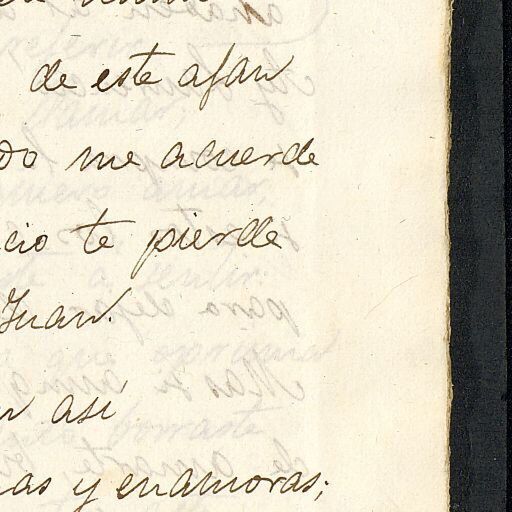 de este afan
do me acuerde
cio te pierde
Juan.
asi
as y enamoras;